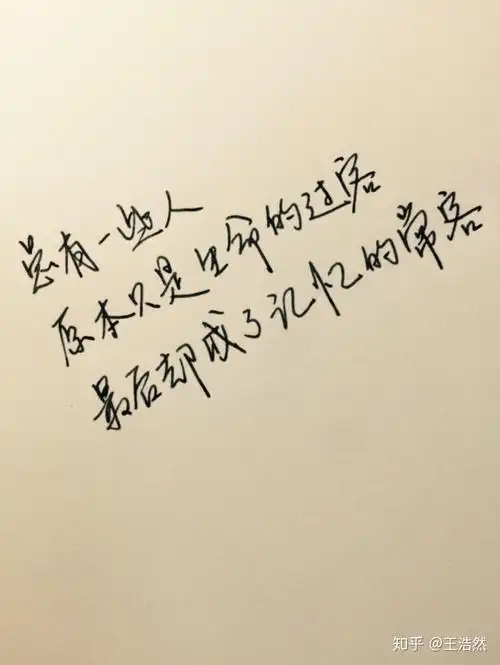 总有一些人
原本只是生命的过客
最后却成了记忆的常客
知乎 @王浩然